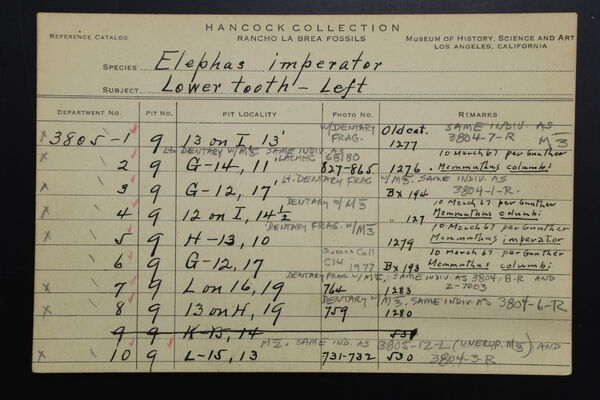 HANCOCK COLLECTION
REFERENCE CATALOG
RANCHO LA BREA FOSSILS
MUSEUM OF HISTORY, SCIENCE AND ART
LOS ANGELES, CALIFORNIA
SPECIES Elephas imperator
SUBJECT Lower tooth - Left
DEPARTMENT NO. PIT NO. PIT LOCALITY PHOTO NO. REMARKS
W/DENTARY FRAG. Old cat. SAME INDIV. AS
x 3805 -1 9 13 on I, 13' 1277 3804-7-R M3
Lt. DENTARY W/M3. SAME INDIV. AS LACMHC 68180 10 March 67 per Gunther
x " 2 9 G-14, 11' 827-865 1276 Mammuthus columbi
Lt. DENTARY FRAG W/M3. SAME INDIV. AS
x " 3 9 G-12, 17' Bx 194 3804-1-R.
DENTARY W/M3 10 March 67 per Gunther
x " 4 9 12 on I, 14½ " 127 Mammuthus columbi
DENTARY FRAG. W/M3 10 March 67 per Gunther
x " 5 9 H-13, 10 1279 Mammuthus imperator
Queens Coll C14 1977 10 March 67 per Gunther
" 6 9 G-12, 17 Bx 193 Mammuthus columbi
DENTARY FRAG W/M3, SAME INDIV. AS 3804-8-R AND
x " 7 9 L on 16, 19 764 1283 Z-7003
DENTARY W/ M3. SAME INDIV. AS 3804-6-R
x " 8 9 13 on H, 19 759 1280
9 9 K-15, 14 531
M2. SAME IND. AS 3805-12-L (UNERUP. M3) AND
x " 10 9 L-15, 13 731-732 530 3804-3-R